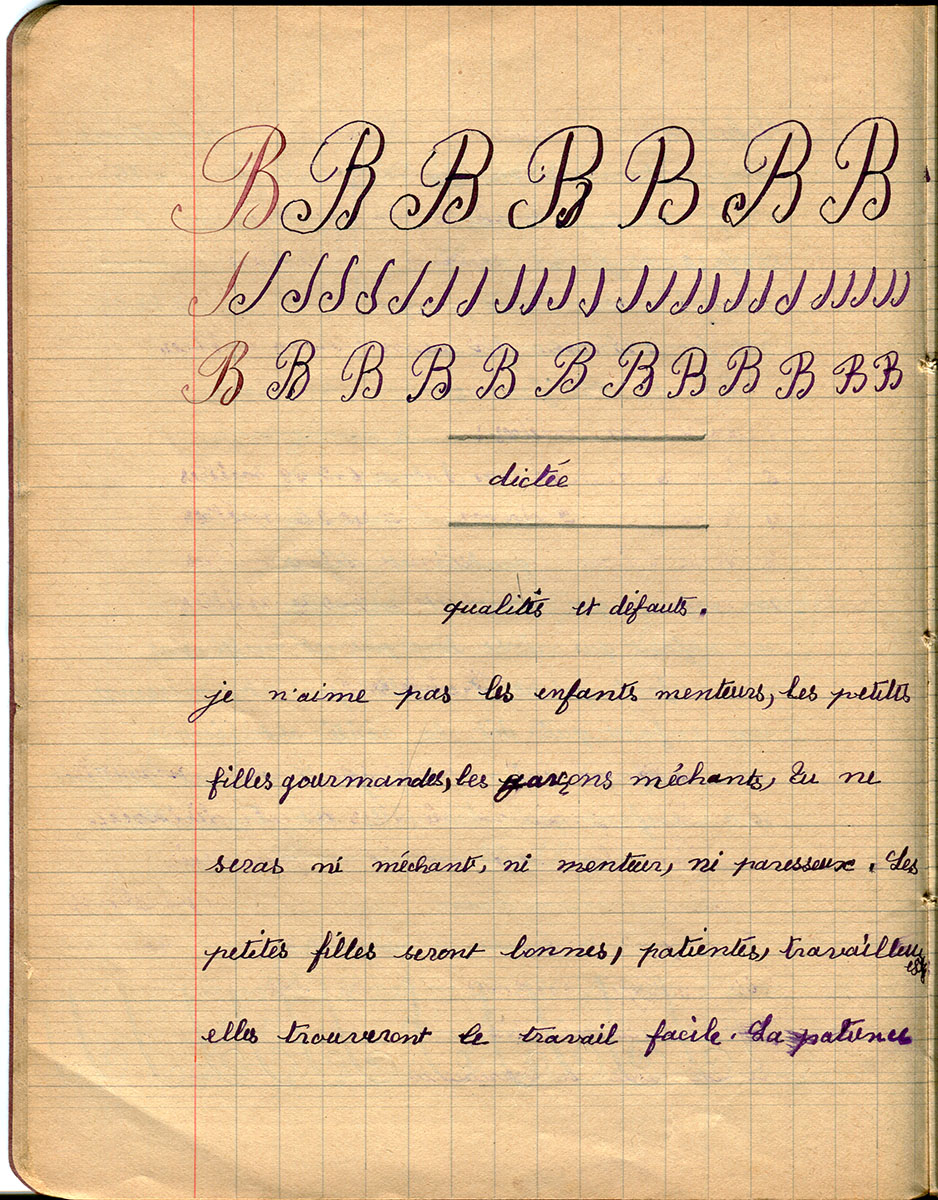 B B B B B B B
B B B B B B B B B B B B
dictée
qualités et défauts.
je n'aime pas les enfants menteurs, les petites
filles gourmandes, les garçons méchants, Tu ne
seras ni méchant, ni menteur, ni paresseux. Les
petites filles seront bonnes, patientes, travailleuses,
elles trouveront le travail facile. La patience